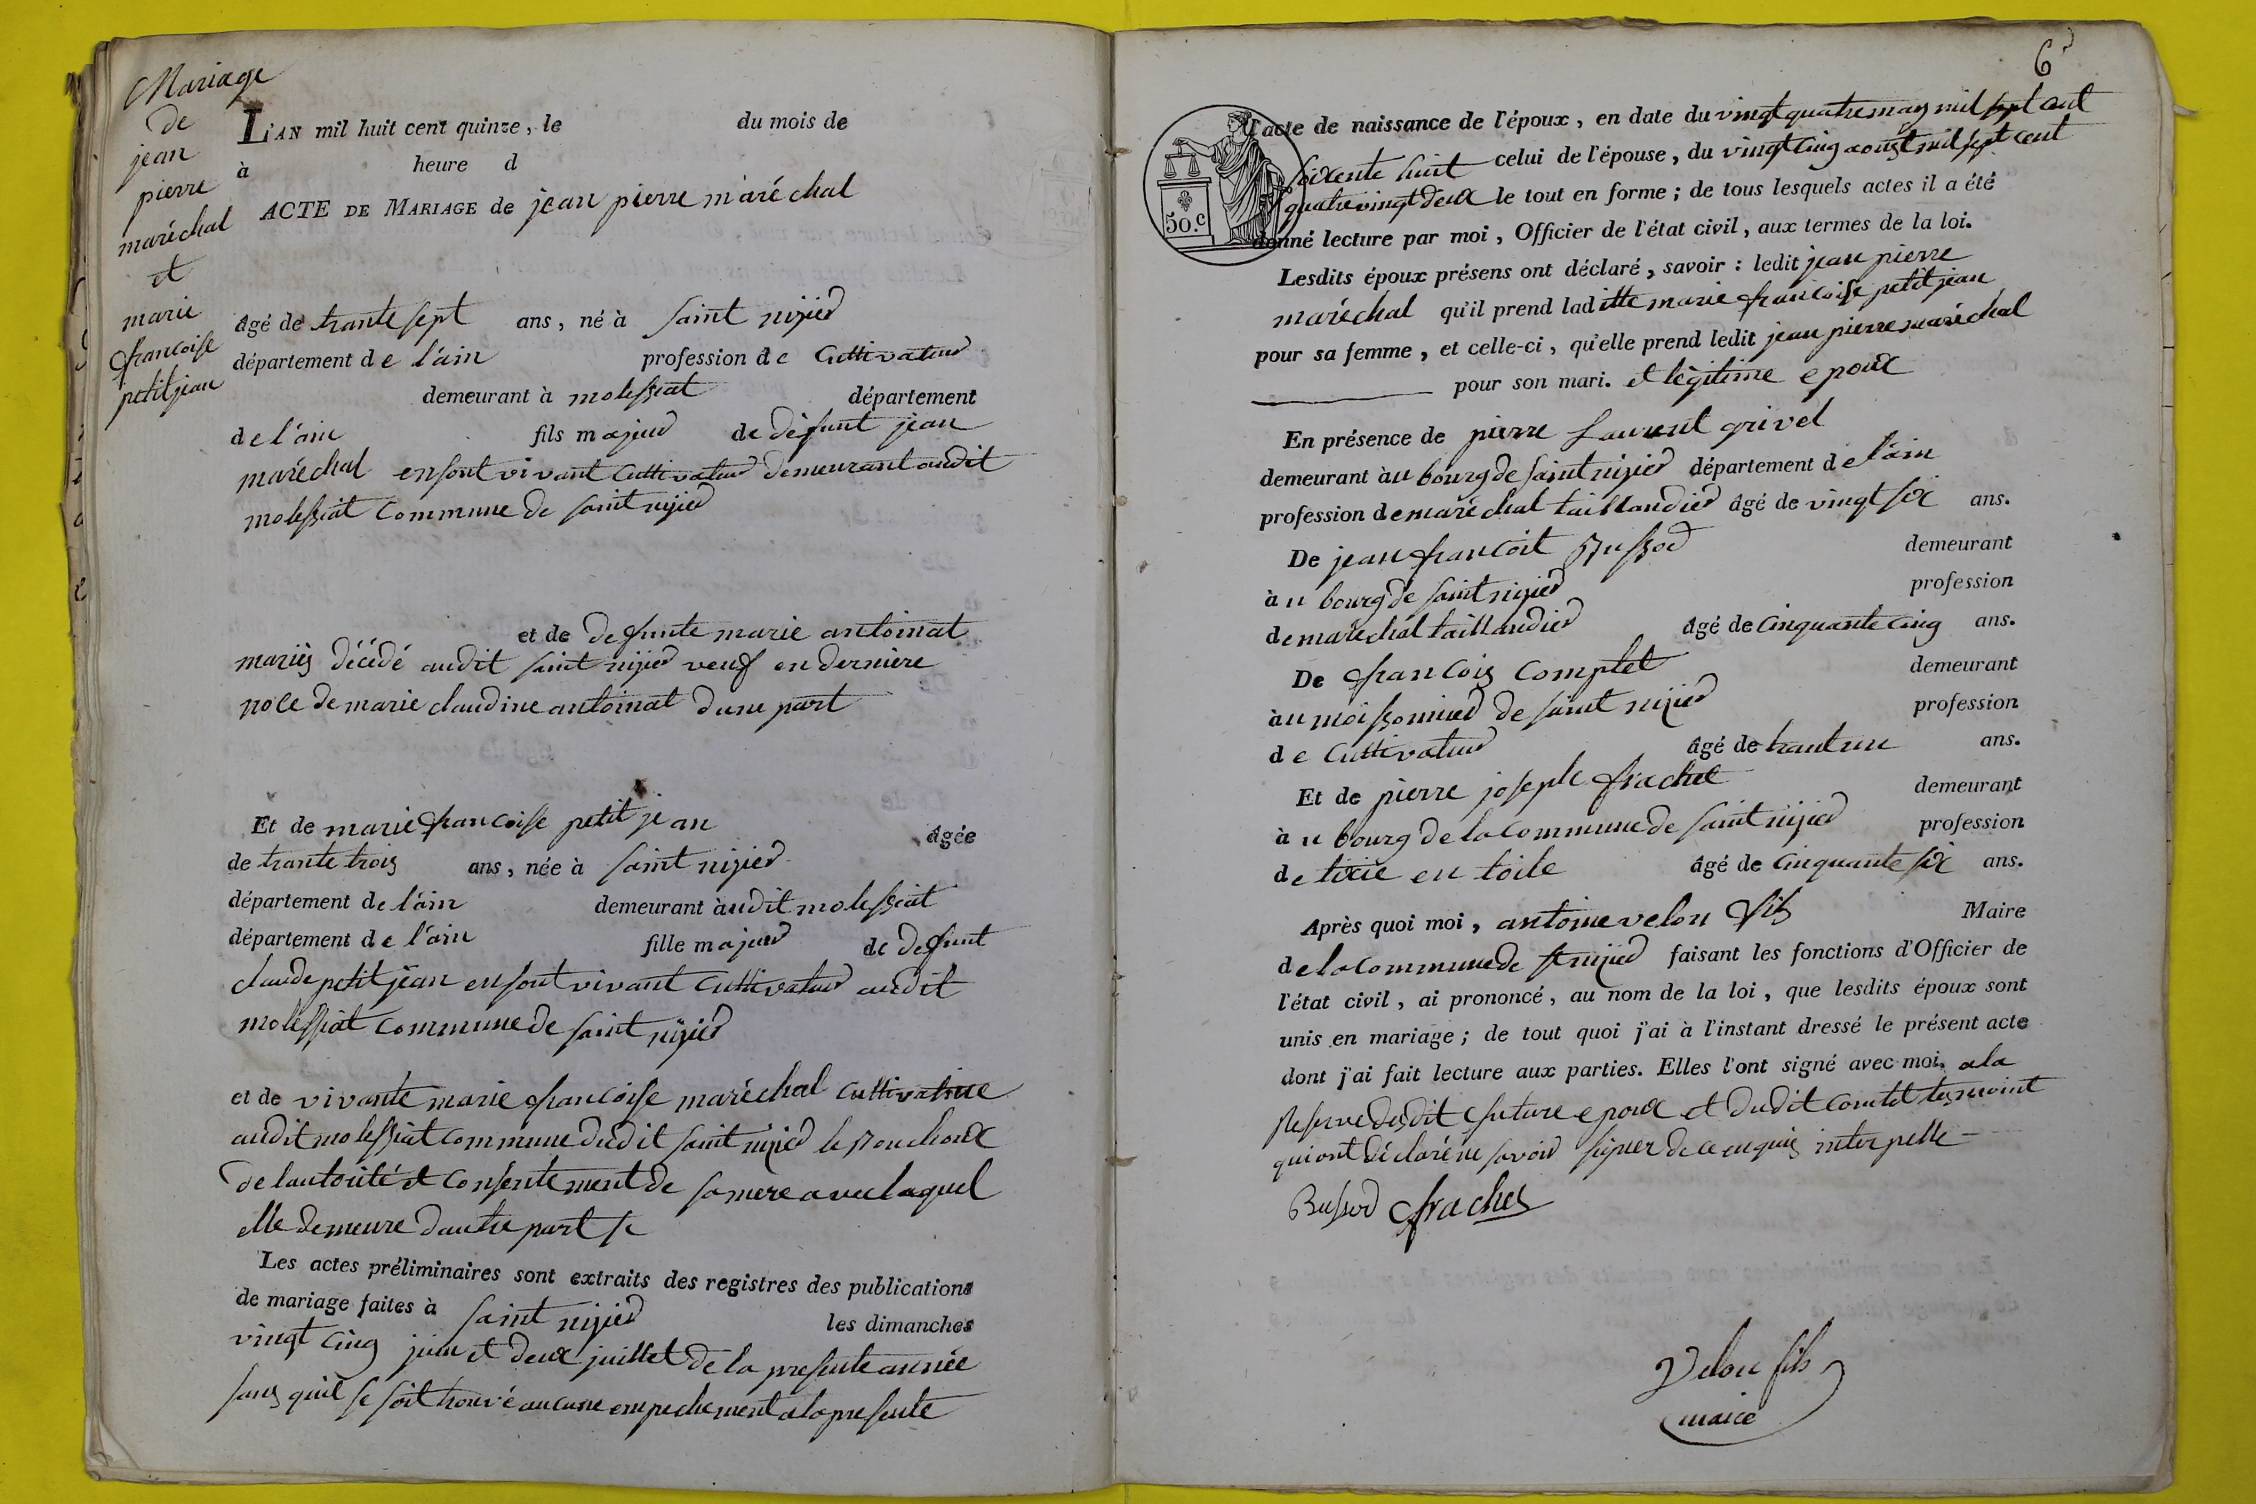 Mariage
de
jean
pierre
maréchal
et
marie
francoise
petit jean
L'AN mil huit cent quinze, le du mois de
à heure d
ACTE DE MARIAGE de jean pierre maréchal
âgé de trante sept ans, né à saint nizier
département de l'ain profession de cultivateur
demeurant à molessiat département
de l'ain fils majeur de defunt jean
maréchal en sont vivant cultivateur demeurant audit
molessiat commune de saint nizier
et de defunte marie antoinat
mariés décédé audit saint nizier veuf en dernière
noce de marie claudine antoinat dune part
Et de marie francoise petit jean âgée
de trante trois ans, née à saint nizier
département de l'ain demeurant à udit molessiat
département de l'ain fille majeur de defunt
claude petit jean en sont vivant cultivateur audit
molessiat commune de saint nizier
et de vivante marie francoise maréchal cultivatrice
audit molessiat commune dudit saint nizier le bouchoux
de lautorité et consentement de sa mere avec laquel
elle demeure dautre part
Les actes préliminaires sont extraits des registres des publications
de mariage faites à saint nizier les dimanches
vingt cinq juin et deux juillet de la presente année
sans quil se soit trouvé aucune empechement a la presente
6
50.c
l'acte de naissance de l'époux, en date du vingt quatre may mil sept cent
soixente huit celui de l'épouse, du vingt cinq aoust mil sept cent
quatre vingt deux le tout en forme; de tous lesquels actes il a été
donné lecture par moi, Officier de l'état civil, aux termes de la loi.
Lesdits époux présens ont déclaré, savoir: ledit jean pierre
maréchal qu'il prend laditte marie francoise petit jean
pour sa femme, et celle-ci, qu'elle prend ledit jean pierre maréchal
pour son mari. et légitime epoux
En présence de pierre Laurent grivel
demeurant àu bourg de saint nizier département de l'ain
profession de maréchal taillandier âgé de vingt six ans.
De jean francoit Bussod demeurant
àu bourg de saint nizier profession
de maréchal taillandier âgé de cinquante cinq ans.
De francois comptet demeurant
àu moissonnier de saint nizier profession
de cultivateur âgé de trant un ans.
Et de pierre joseph frachet demeurant
àu bourg de la commune de saint nizier profession
de tixie en toile âgé de cinquante six ans.
Après quoi moi, antoine velon fils Maire
de la commune de st nizier faisant les fonctions d'Officier de
l'état civil, ai prononcé, au nom de la loi, que lesdits époux sont
unis en mariage; de tout quoi j'ai à l'instant dressé le présent acte
dont j'ai fait lecture aux parties. Elles l'ont signé avec moi. a la
reserve desdit future epoux et dudit comtet tesmoint
qui ont déclaré ne savoir signer de ce enquis interpelle
Bussod frachet
Velon fils
maire